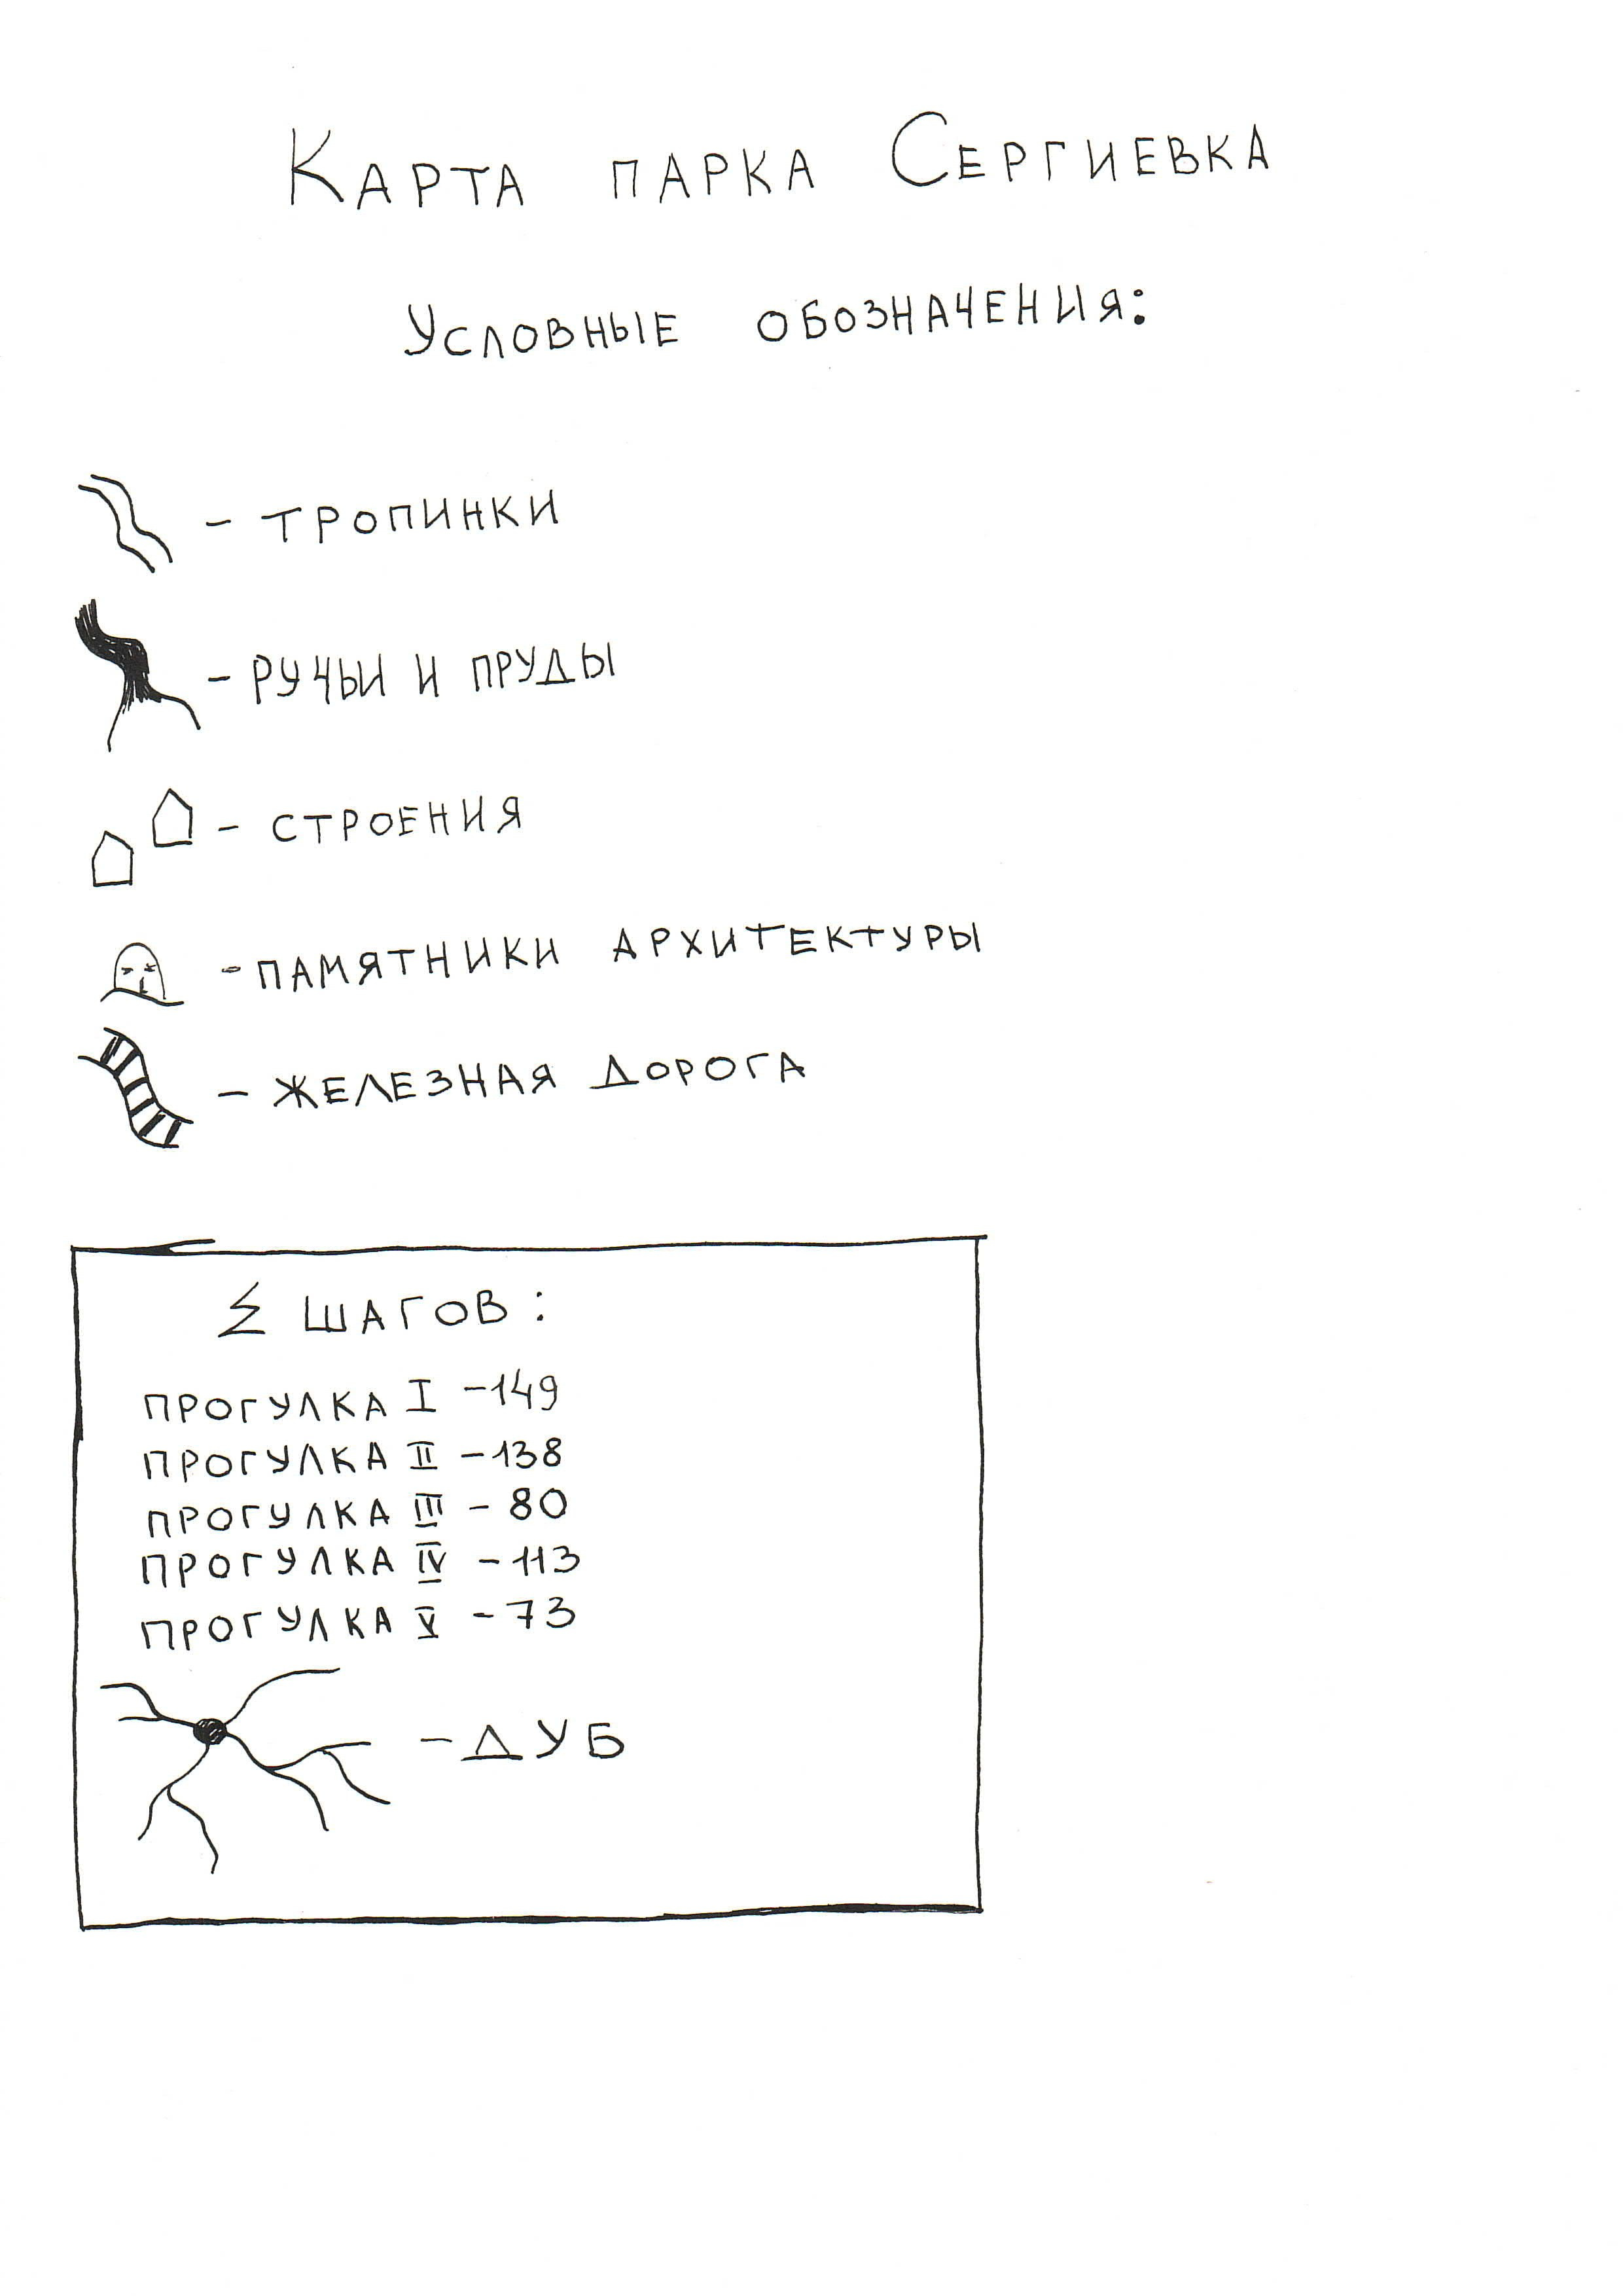 Карта парка Сергиевка
Условные обозначения:
- тропинки
- ручьи и пруды
- строения
- памятники архитектуры
- железная дорога
Σ шагов:
прогулка I - 149
прогулка II - 138
прогулка III - 80
прогулка IV - 113
прогулка V - 73
- дуб